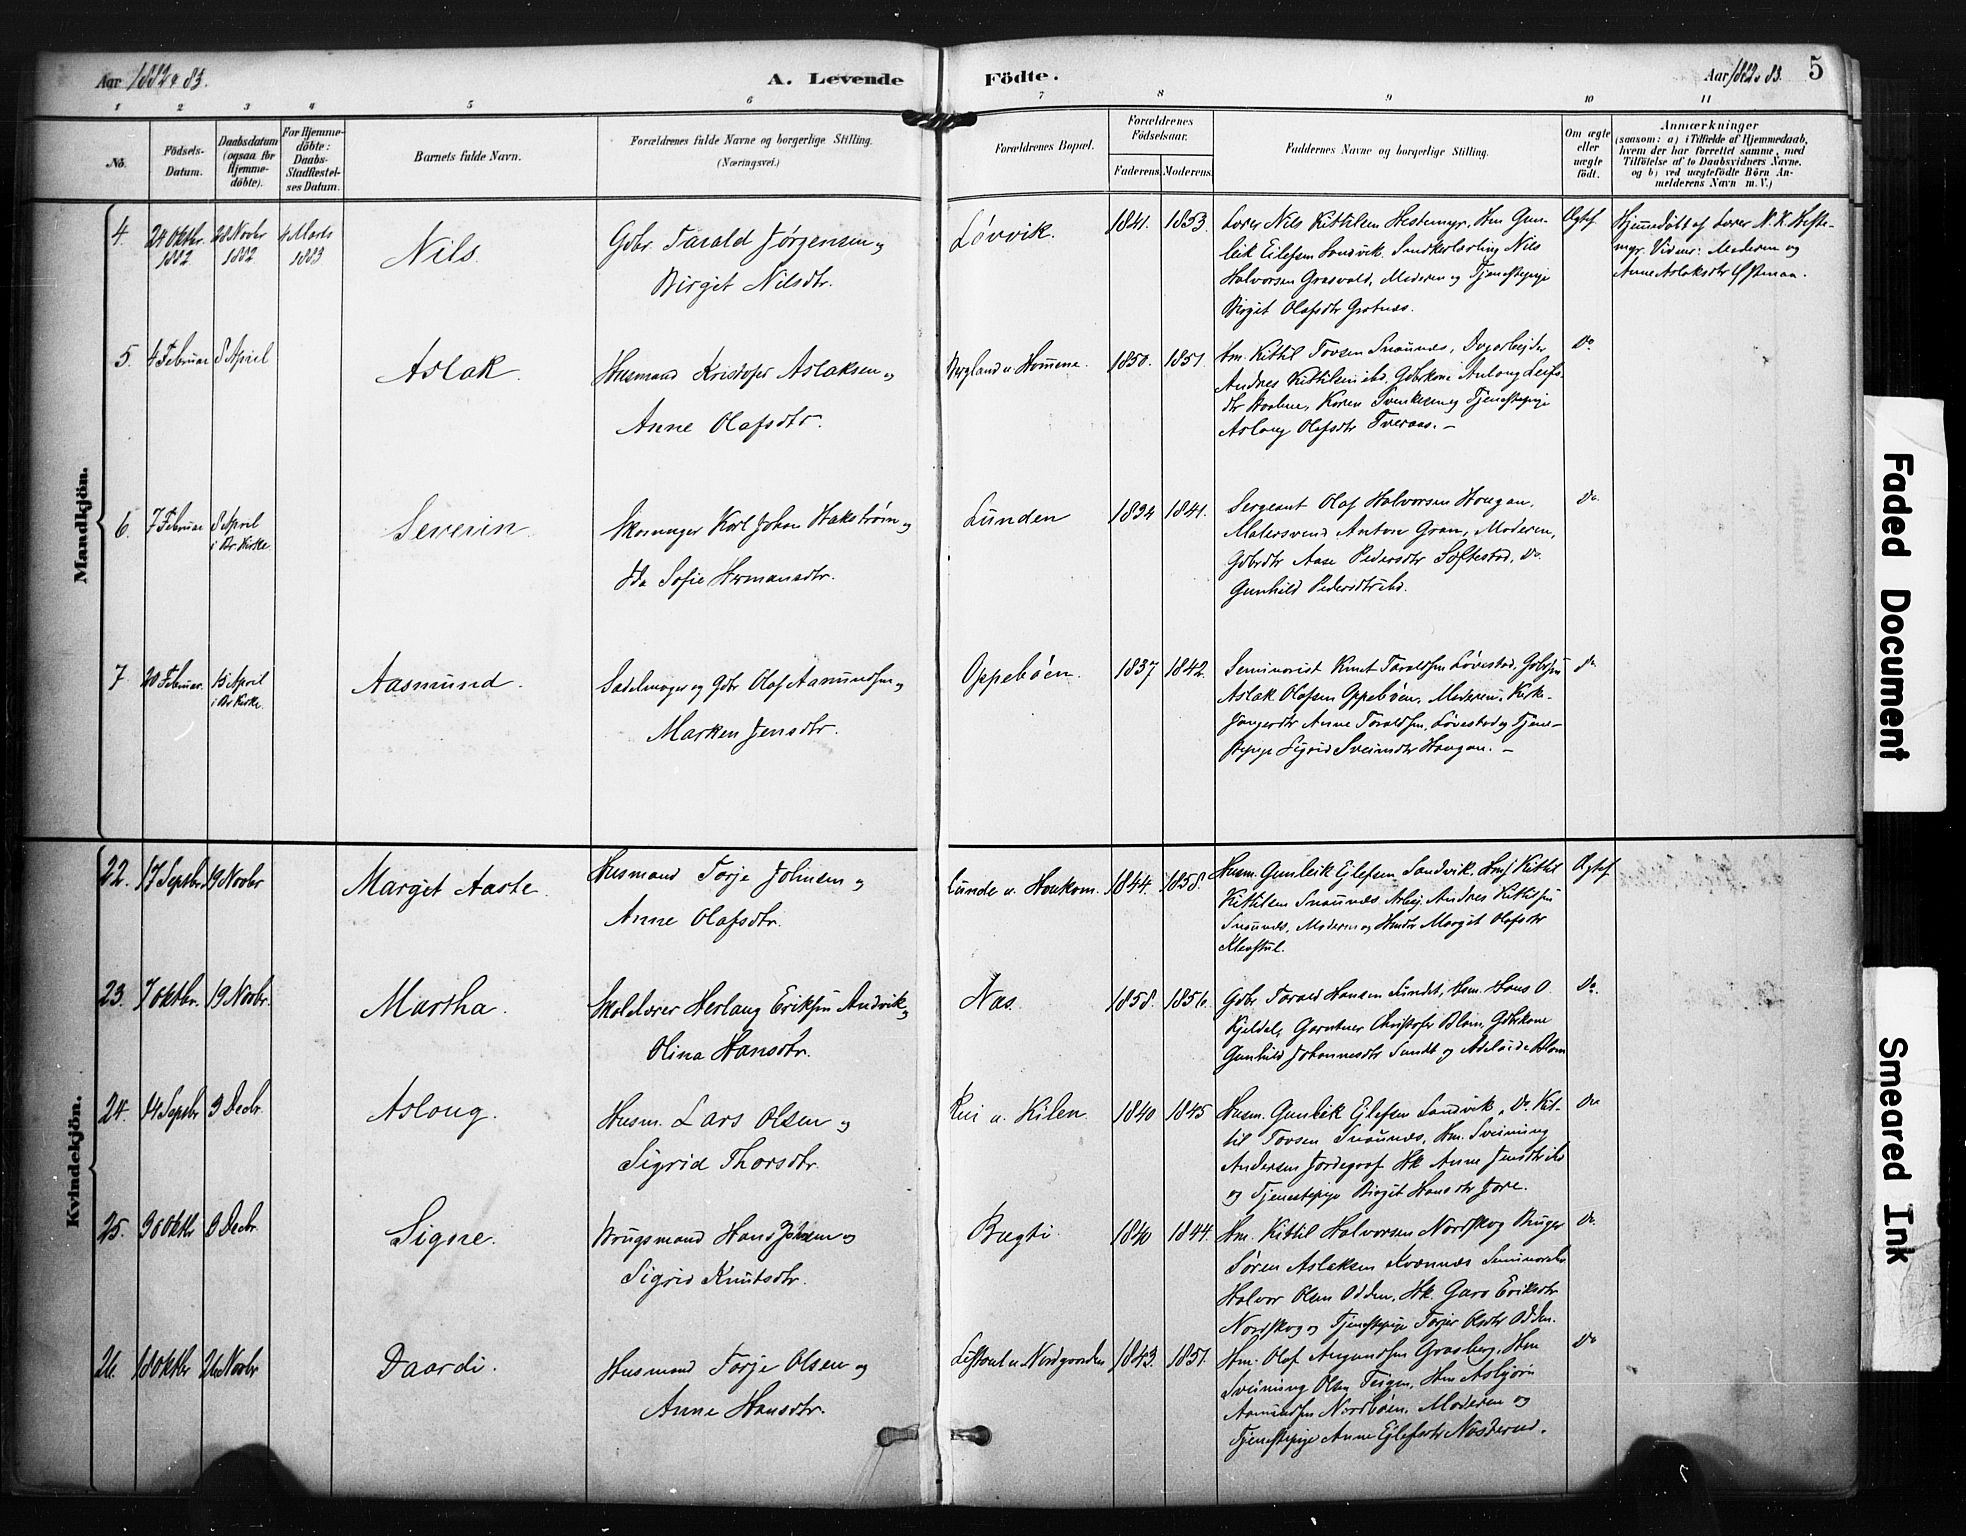 Aar 1882 & 83.
A. Levende
Födte.
Aar 1882 & 83.
5
1 2 3 4 5 6 7 8 9 10 11
No.
Födsels-
Datum.
Daabsdatum
(ogsaa for
Hjemme-
döbte).
For Hjemme-
döbte:
Daabs-
Stadfæstel-
ses Datum.
Barnets fulde Navn.
Forældrenes fulde Navne og borgerlige Stilling.
(Næringsvei.)
Forældrenes Bopæl.
Forældrenes
Födselsaar.
Faderens. Moderens.
Faddernes Navne og borgerlige Stilling.
Om ægte
eller
uægte
födt.
Anmærkninger
(saasom: a) i Tilfælde af Hjemmedaab,
hvem der har forrettet samme, med
Tilföielse af to Daabsvidners Navne,
og b) ved uægtefödte Börn An-
melderens Navn m. V.)
Mandkjön.
4.
24 Oktbr.
1882
20 Novbr
1882
4 Marts
1883
Nils.
Gdbr. Tarald Jørgensen og
Birgit Nilsdtr.
Løvvik.
1841. 1853.
Lærer Nils Kittilsen Hestemyr, Hm Gun-
leik Eilefsen Sandvik, Snedkerlærling Nils
Halvorsen Grasvald, Moderen og Tjenestepige
Birgit Olafsdtr Grotnæs.
Ægtef.
Hjemmedöbt af Lærer N. K. Heste-
myr. Vidner: Moderen og
Anne Aslaksdtr
5.
4 Februar
8 April
Aslak.
Husmand Kristofer Aslaksen og
Anne Olafsdtr.
Bergland u. Hommene.
1850. 1851.
Hm. Kittil Tovsen Snounæs, Dagarbejder
Andres Kittilsen ibd. Gdbrkone Aslaug Leifs-
dtr Karen Svenkesen og Tjenestepige
Aslaug Olafsdtr Tveraas. –
Do.
6.
7 Februar
8 April
i Br Kirke
Severin.
Skomager Karl Johan Hakstrøm og
Ida Sofie Hermansdtr.
Lunden
1834 1841.
Sergeant Olaf Halvorsen Haugan,
Malersvend Anton Gran, Moderen,
Gdbrdtr Aase Pedersdtr Sóftestad, Do.
Gunhild Pedersdtr ibd.
Do.
7.
20 Februar.
15 April
i Br Kirke.
Aasmund.
Sadelmager og Gdbr Olaf Aamundsen og
Marken Jensdtr.
Oppebøen.
1837 1842.
Seminarist Knut Taraldsen Løvestad, Gdbrsøn
Aslak Olafsen Oppebøen, Moderen, Kirke-
sangerdtr Anne Taraldsen, Løvestad og Tjene-
stepige Sigrid Sveinsdtr Haugan. –
Do
Kvindekjön.
22.
17 Septbr
19 Novbr
Margit Aaste.
Husmand Torje Johnsen og
Anne Olafsdtr.
Lunde u. Haukom.
1844. 1858.
Husm. Gunleik Ejlefsen Sandvik, Hmf Kittil
Kittilsen Snounæs, Arbej. Andres Kittilsen
Snounæs, Moderen og Hmdtr Margit Olafsdtr
Kleivstul.
Ægtef.
23.
7 Oktbr.
19 Novbr.
Martha.
Skolelærer Herlaug Eriksen Andvik og
Olina Hansdtr.
Nas.
1858. 1856.
Gdbr Tarald Hansen Sundet, Hsm. Hans O.
Kjeldal, Gartner Christofer Blom, Gdbrkone
Gunhild Johannesdtr Sundt og Adelaide Blom
Do.
24.
14 Septbr
3 Decbr.
Aslaug.
Husm. Lars Olsen og
Sigrid Thorsdtr.
Rui u. Kilen.
1840 1845
Husm. Gunleik Ejlefsen Sandvik, Do Kit-
til Tovsen Snounæs, Hm. Sveinung
Andersen Jordegraf, Hk Anne Jensdtr ibd
og Tjenestepige Birgit Hansdtr Jore.
Do
25.
30 Oktbr
3 Decbr.
Signe.
Brugsmand Hans Johnsen og
Sigrid Knutsdtr.
Bægti.
1840 1844.
Hm. Kittil Halvorsen Nordskog Bruger
Søren Aslaksen Kvennæs Seminarist
Halvor Olsen Odden, Hk. Garo Eriksdtr
Nordskog og Tjenestepige Torjer Olsdtr Odden.
Do.
26.
18 Oktbr
26 Novbr
Daardi.
Husmand Torje Olsen og
Anne Hansdtr.
Listaul u. Nordgaarden
1843. 1851.
Hm. Olaf Aamundsen Grasberg, Hm
Sveinung Olsen Teigen, Hm Asbjørn
Aamundsen Nordbøen, Moderen og
Tjenestepige Anne Ejlefsdtr Næsterud.
Do
Faded Document
Smeared Ink